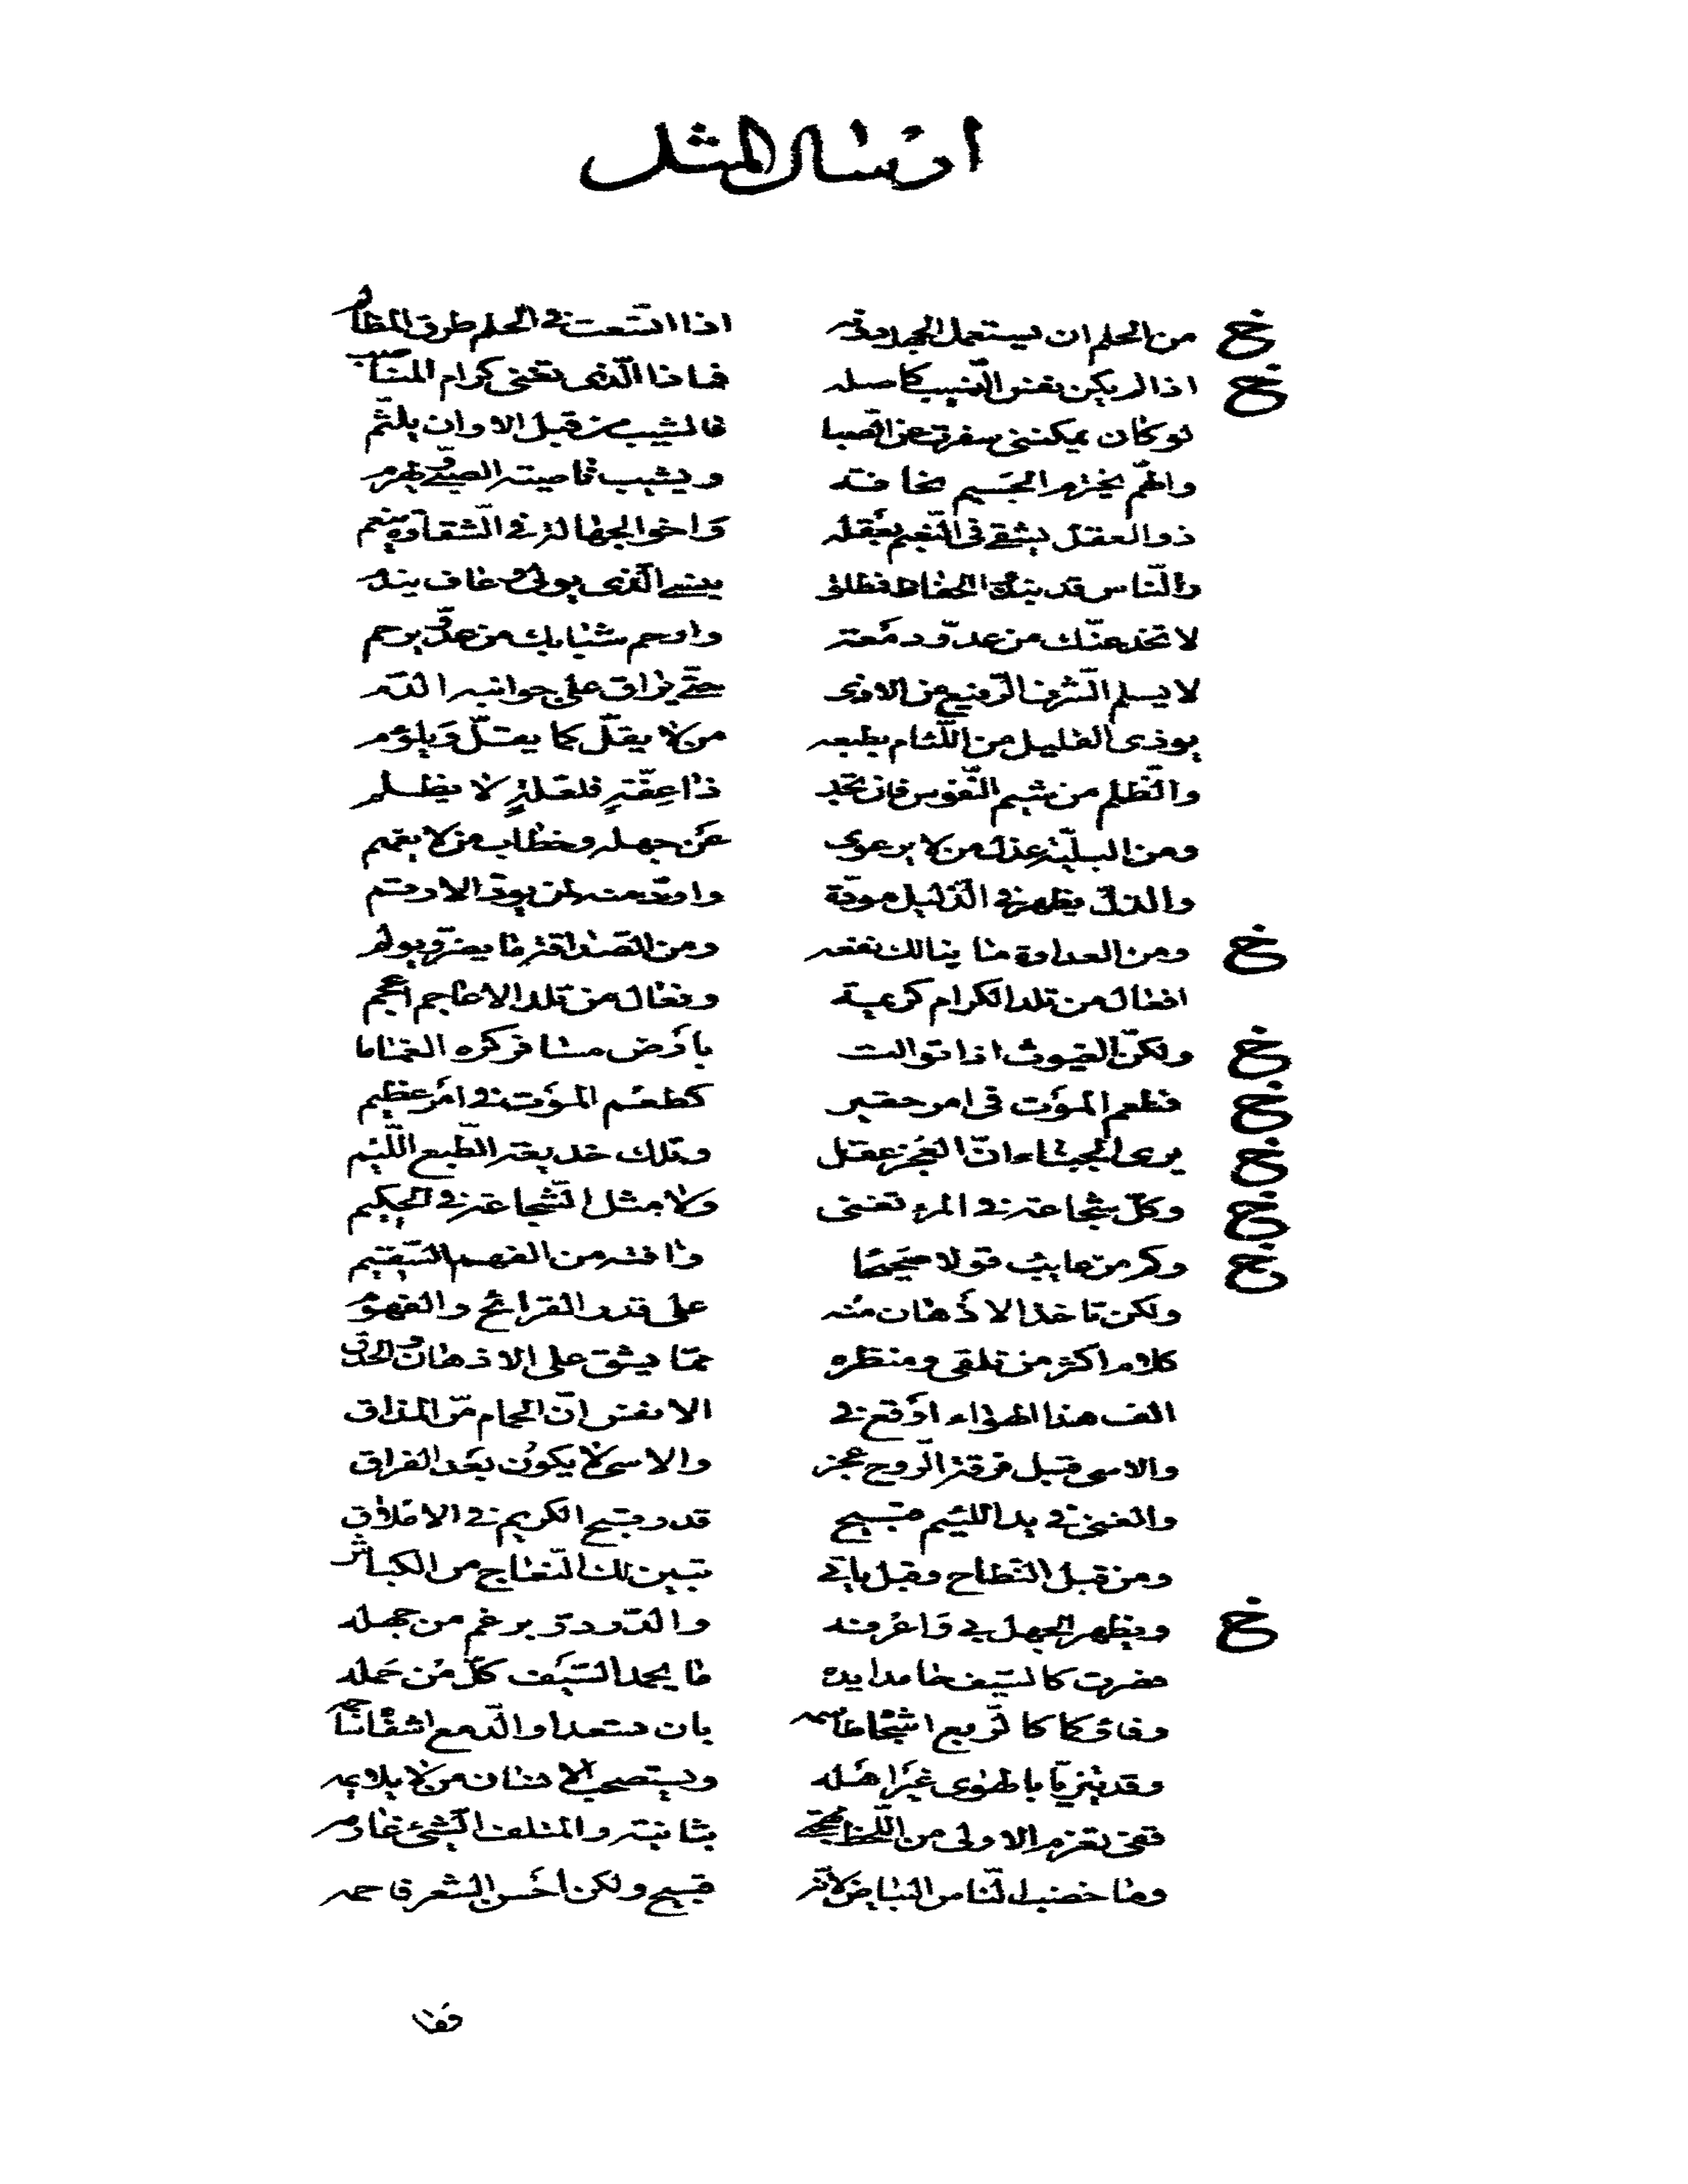 ارسال المثل
خ من الحلم ان يستعمل الجهل دونه اذا اتسعت في الحلم طرق المظالم
خ اذا لم يكن نفس النسيب كاصله فماذا الّذى تغنى كرام المناصب
لو كان يمكننى سفرت عن الصبا فالشيب من قبل الاوان يلثّم
والهمّ يخترم الجسيم مخافة ويشيب ناصية الصبىّ ويهرم
ذو العقل يشقى فى النّعيم بعقله وَاخو الجهالة في الشّقاوة ينعم
والنّاس قد نبذوا الحفاظ فمطلق ينسى الّذى يولى وعاف يندم
لا تخدعنّك من عدوّ دمعة وارحم شبابك من عدوّ يرحم
لا يسلم الشّرف الرّفيع من الاذى حتّى يراق على جوانبه الدّم
يوذى القليل من اللّئام بطبعه من لا يقلّ كما يقلّ ويلؤم
والظّلم من شيم النّفوس فان تجد ذا عِفّةٍ فلعلّةٍ لا يظلم
ومن البليّة عذل من لا يرعوى عَن جهله وخطاب من لا يفهم
والذلّ يظهر في الذّليل مودّة واودّ منه لمن يودّ الارقم
خ ومن العداوة ما ينالك نفعه ومن الصّداقة ما يضرّ ويولم
افعال من تلد الكرام كريمة وفعال من تلد الاعاجم اعجم
خ ولكنّ الغيوث اذا توالت بأرض مسافر كره الغماما
خ فطعم المَوت في امر حقير كطعم المَوت في امر عظيم
خ يرى الجبناء انّ العَجز عقل وتلك خديعة الطّبع اللّئيم
خ وكلّ شجاعة في المرء تغنى وَلا مثل الشّجاعة في الحكيم
خ وكم من عايب قولا صَحيحًا وافته من الفهم السّقيم
ولكن تاخذ الاذهان منه على قدر القرائح والفهوم
كلام اكثر من تلقى ومنظره ممّا يشق على الاذهان والحدق
الف هذا الهواء اوقع في الانفس انّ الحمام مرّ المذاق
والاسى قبل فرقة الرّوح عجز والاسى لا يكون بعَد الفراق
والغنى في يد اللئيم قبيح قدر قبح الكريم في الاملاق
ومن قبل النّطاح وقبل ياتى تبين لك النّعاج من الكباش
خ ويظهر الجهل بي وَاعرفه والدّرّ درّ برغم من جهله
صرت كالسّيف حامدا يده ما يحمد السّيَف كلّ من حَمله
وفاؤكما كالرّبع اشجاه طاسمه بان تسعدا والدّمع اشفاه ساجمه
وقد يتزيّا بالهوى غَير اهله ويستصحب الانسان من لا يلايمه
قفى تغرم الاولى من اللّحظ مهجتى بثانية والمتلف الشّئ غارمه
وما خضب النّاس البياض لانّه قبيح ولكن احَسن الشّعر فاحمه
وَما